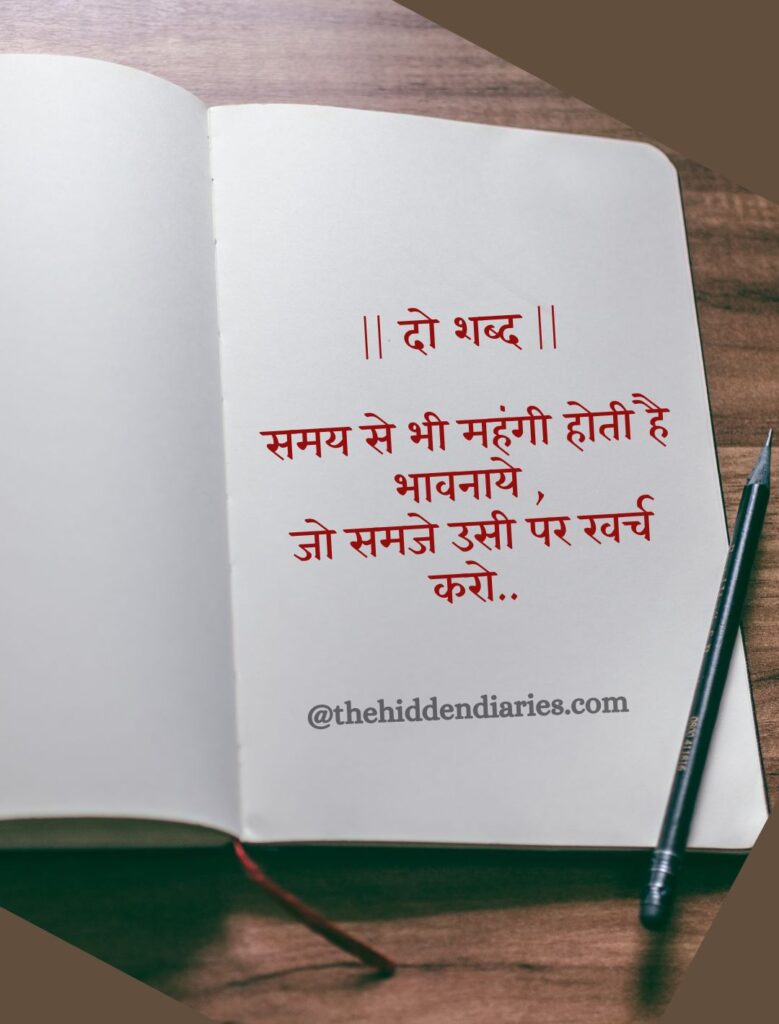 || दो शब्द ||
समय से भी महंगी होती है
भावनाये ,
जो समजे उसी पर खर्च
करो..
@thehiddendiaries.com